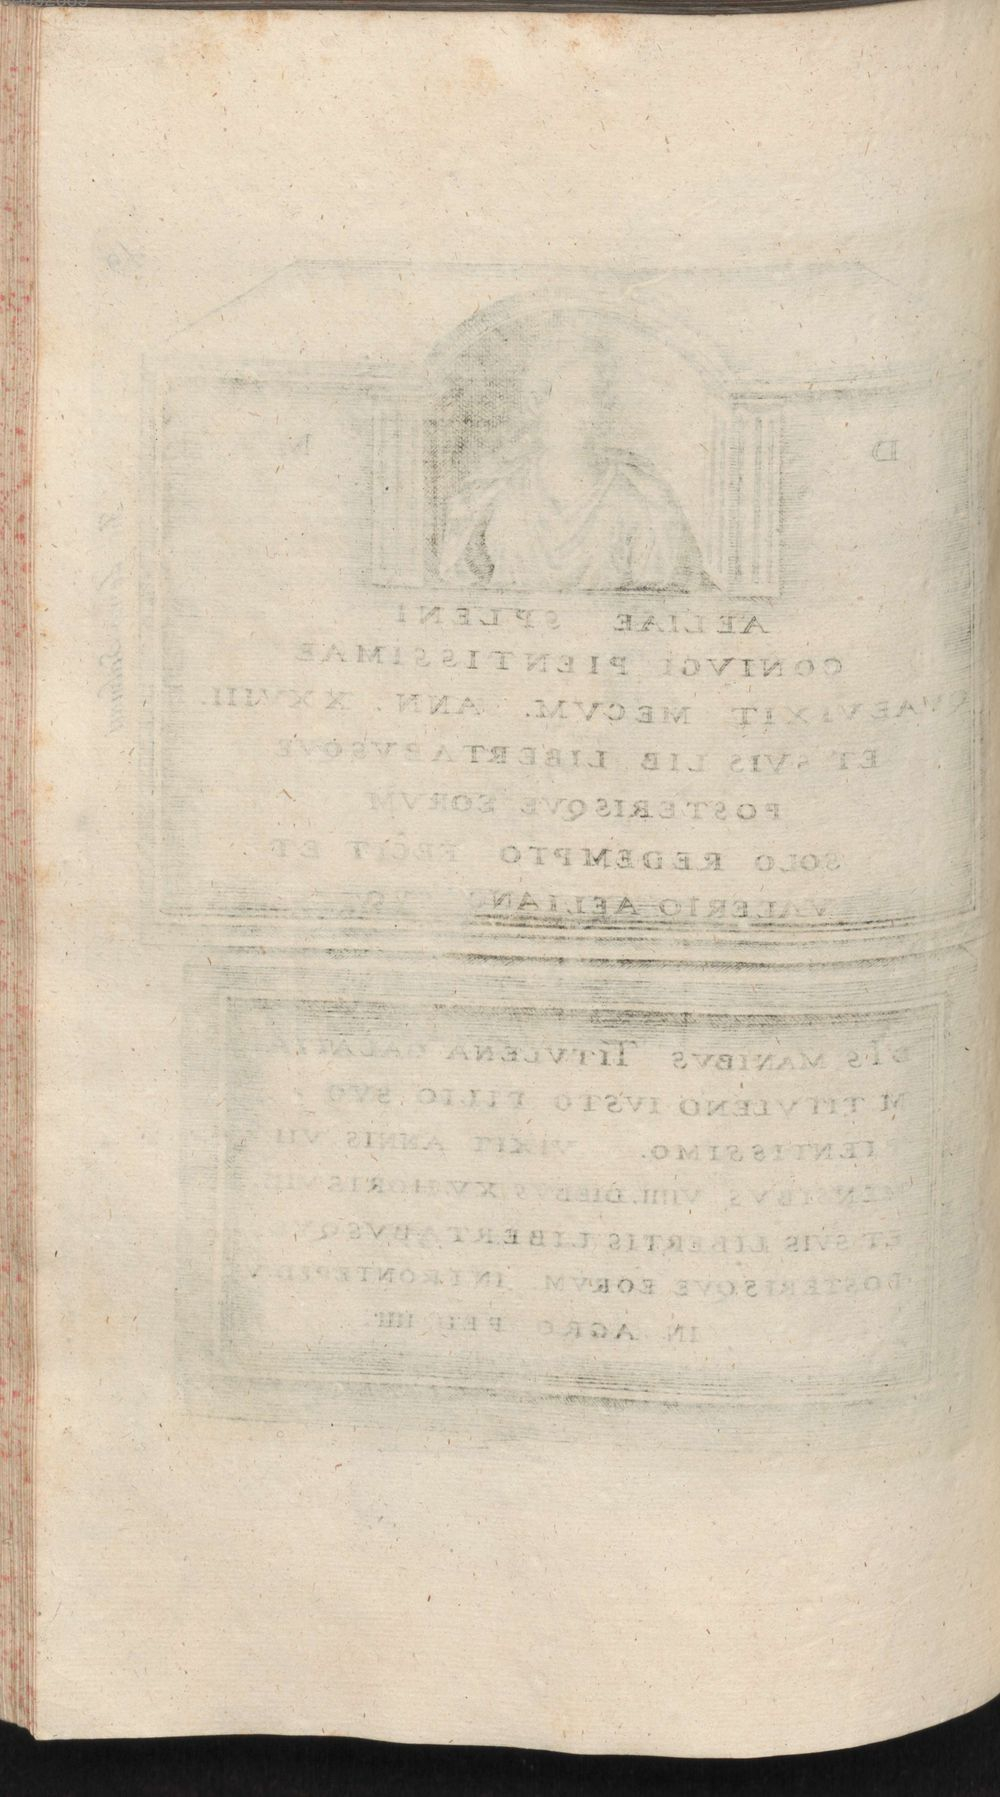 D M
AELIAE SPLENI
CONIVGI PIENTISSIMAE
QVAEVIXIT MECVM. ANN. XXVIII.
ET SVIS LIB LIBERTABVSQVE
POSTERISQVE EORVM
SOLO REDEMPTO FECIT ET
VALERIO AELIANO
DIS MANIBVS TITVLENA GALATIA
M TITVLENO IVSTO FILIO SVO
PIENTISSIMO. VIXIT ANNIS VII
MENSIBVS VIIII. DIEBVS XV. HORIS VIII.
ET SVIS LIBERTIS LIBERTABVSQVE
POSTERISQVE EORVM. IN FRONTE PED V
IN AGRO PED IIII.